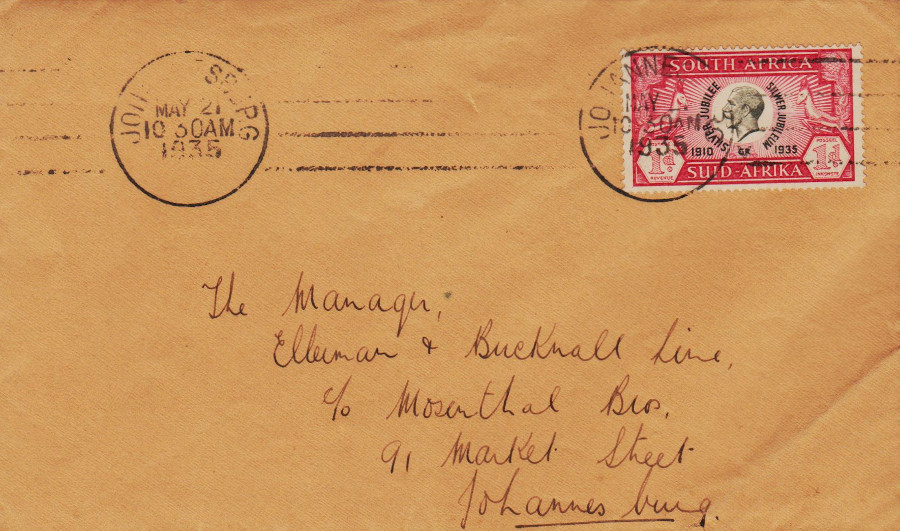 JOHANNESBURG
MAY 21
10 30AM
1935
JOHANNESBURG
MAY 21
10 30AM
1935
SOUTH AFRICA
SILVER JUBILEE
SILWER JUBILEUM
1910 GR 1935
1d 1d
REVENUE INKOMSTE
SUID-AFRIKA
The Manager,
Ellerman & Bucknall Line,
c/o Mosenthal Bros,
91 Market Street
Johannesburg.